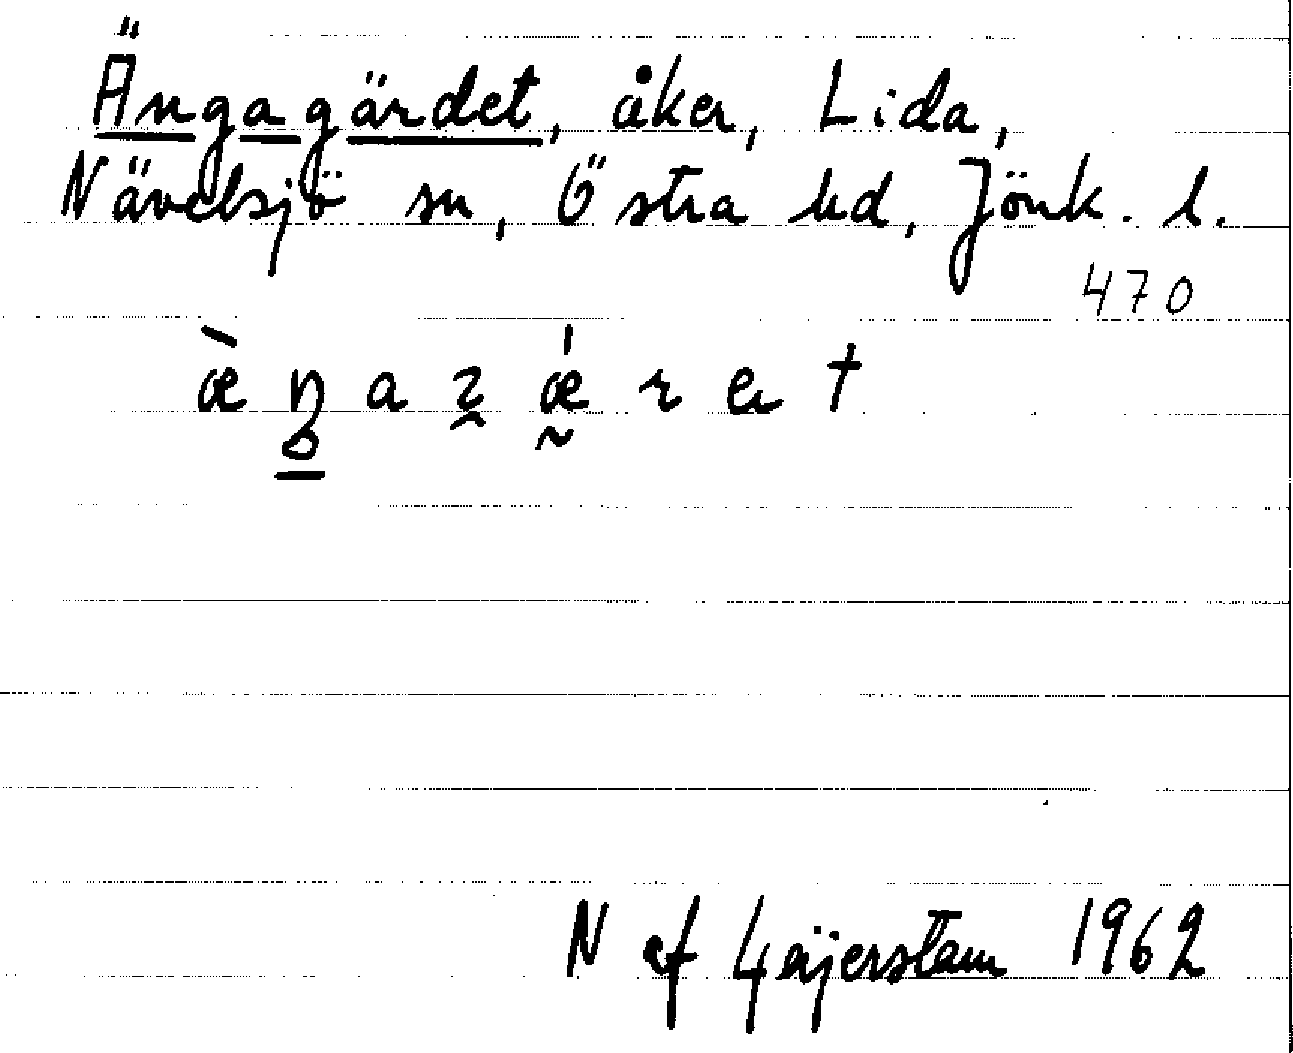 Ängagärdet, åker, Lida,
Nävelsjö sn, Östra hd, Jönk. l.
470
N af Geijerstam 1962